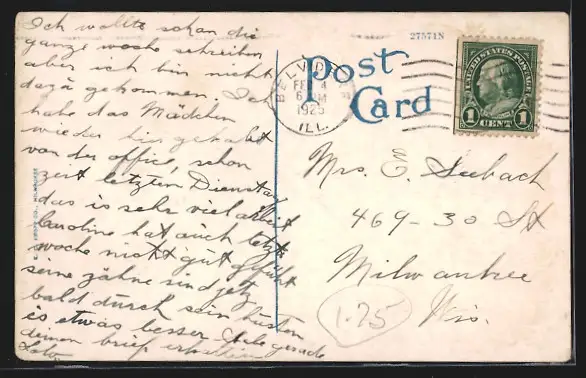 Ich wollte schon die
ganze woche schreiben
aber ich bin nicht
dazu gekommen. Ich
habe das Mädchen
wieder hier gehabt
von der office, schon
zeit letzten Dienstag
das is sehr viel arbeit
Caroline hat auch letzte
woche nicht gut gefühlt
seine zähne sind jetz
bald durch sein husten
is etwas besser. habe gerade
deinen brief erhalten
27571N
Post
Card
BELVIDERE
FEB 4
6 PM
1925
ILL.
UNITED STATES POSTAGE
1 CENT 1
Mrs. E. Seebach
469-30 St
Milwaukee
Wis.
1.75